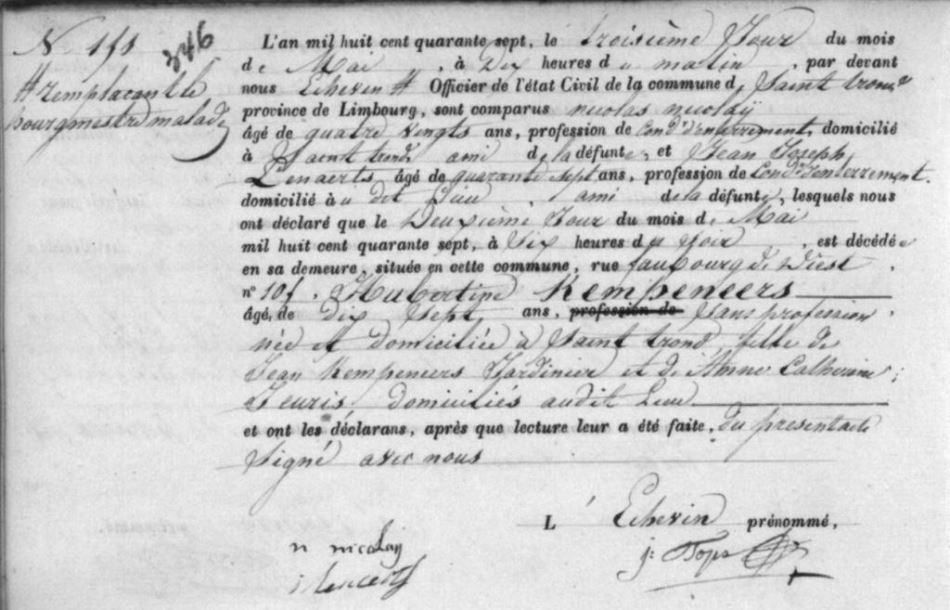 N 151
346
# remplacant le
bourgmestre malade
L'an mil huit cent quarante sept, le troisième Jour du mois
de Mai, à Dix heures du matin, par devant
nous Echevin # Officier de l'état Civil de la commune de Saint trond
province de Limbourg, sont comparus nicolas nicolaÿ
âgé de quatre vingts ans, profession de Condr d'enterrement, domicilié
à Saint trond, ami de la défunte, et Jean Joseph
Lenaerts, âgé de quarante sept ans, profession de Condr d'enterrement.
domicilié à u dit Lieu, ami de la défunte, lesquels nous
ont déclaré que le Deuxième Jour du mois de Mai
mil huit cent quarante sept, à Dix heures du Soir, est décédée
en sa demeure, située en cette commune, rue faubourg de Diest
n° 105. Hubertine Kempeneers
âgée de dix sept, ans, profession de Sans profession
née et domiciliée à Saint trond, fille de
Jean Kempeneers Jardinier et de Anne Catherine
domiciliés audit Lieu
et ont les déclarans, après que lecture leur a été faite, du present acte
Signé avec nous
L' Echevin prénommé,
n nicolaÿ
j: Tops